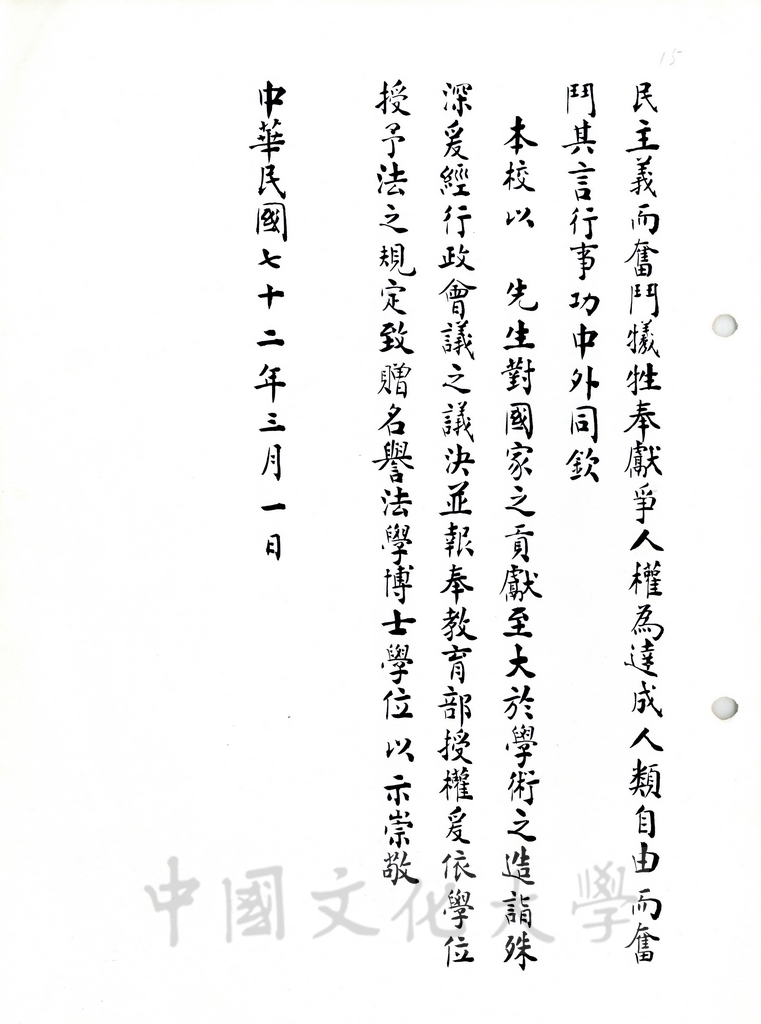 15
民主義而奮鬥犧牲奉獻爭人權為達成人類自由而奮
鬥其言行事功中外同欽
本校以　先生對國家之貢獻至大於學術之造詣殊
深爰經行政會議之議決並報奉教育部授權爰依學位
授予法之規定致贈名譽法學博士學位以示崇敬
中華民國七十二年三月一日
中國文化大學